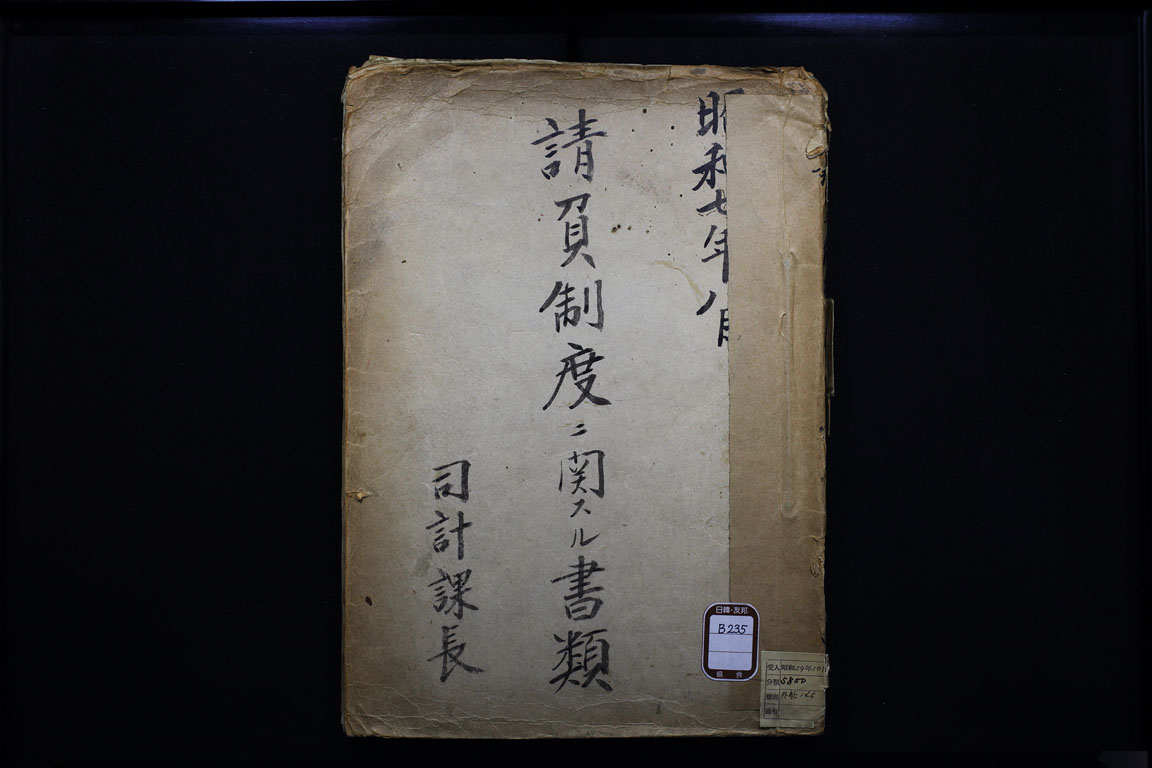 昭和七年八月
請負制度ニ関スル書類
司計課長
日韓・友邦
B235
協会
受入 昭和29年10
分類 5800